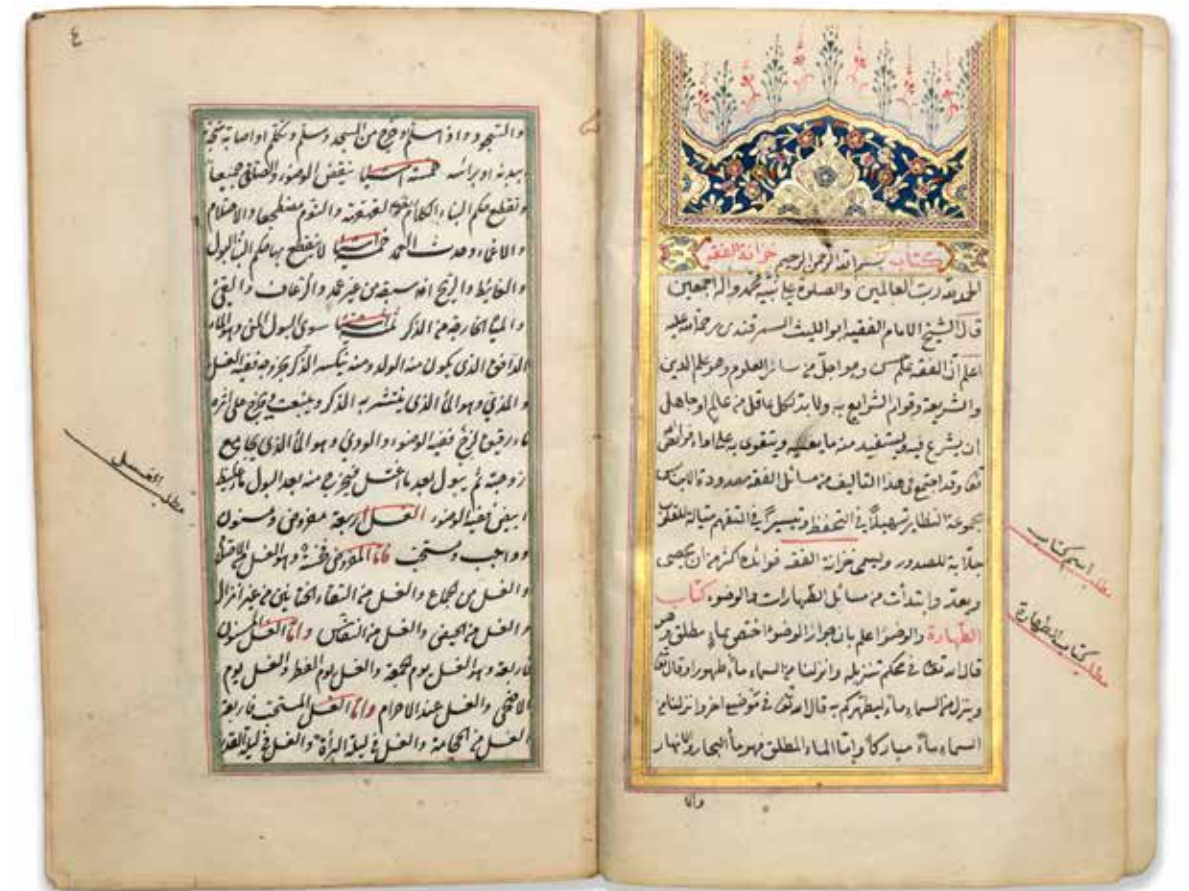 كتاب بسم الله الرحمن الرحيم خزانة الفقه
الحمد لله رب العالمين والصلوة على نبيه محمد واله اجمعين
قال الشيخ الامام الفقيه ابو الليث السمرقندى رحمة الله عليه
اعلم ان الفقه علم حسن وهو اجل من سائر العلوم وهو علم الدين
والشريعة وقوام الشرايع به ولا بد لكل عاقل من عالم او جاهل
ان يشرع فيه ويستفيد منه ما يعينه ويتقوى به على اداء فرائض
تعا وقد اجتمع فى هذا التأليف من مسائل الفقه معدودة الاجناس
مجموعة النظاير تسهيلا فى التحفظ وتيسيرا فى التفهم للقلوب
جلابة للصدور وليسمى خزانة الفقه فوائده اكثر من ان يحصى
وبعد وابتدأت من مسائل الطهارات والوضوء كتاب
الطهارة والوضوء اعلم بان جواز الوضوء اختص بماء مطلق وهو
قال الله تعا فى محكم تنزيله وانزلنا من السماء ماء طهورا وقال تعا
وينزل من السماء ماء ليطهركم به قال الله تعا فى موضع اخر وانزلنا من
السماء ماء مباركا واما الماء المطلق فهو ماء البحار والانهار
واما
مطلب اسم كتاب
مطلب كتاب الطهارة
٤
او خرج من المسجد وسلم وتكلم او اصابه
ببدنه او برأسه خمسة اشيا ينقض الوضوء والصلاة جميعا
وتقطع حكم البناء الكلام والقهقهة والنوم مضطجعا والاحتلام
والاغماء وحدث العمد خمسة اشيا لا ينقطع بها حكم البناء البول
والغائط والريح اذا سبقه من غير عمد والرعاف والقئ
الخارجة من الذكر ثلثة اشيا سوى البول المنى وهو الماء
الدافق الذى يكون منه الولد ومنه ينكسر الذكر بخروجه ففيه الغسل
والمذى وهو الماء الذى ينتشر به الذكر
ماء رقيق لزج ففيه الوضوء والودى وهو الماء الذى يجامع
زوجته ثم يبول بعد ما اغتسل فيخرج منه بعد البول ماء غليظ
ابيض ففيه الوضوء الغسل اربعة مفروض ومسنون
وواجب ومستحب فاما المفروض فخمسة وهو الغسل من الاحتلام
والغسل من الجماع والغسل من التقاء الختانين من غير انزال
والغسل من الحيض والغسل من النفاس واما الغسل المسنون
فاربعة وهو الغسل يوم الجمعة والغسل يوم الفطر والغسل يوم
الاضحى والغسل عند الاحرام واما الغسل المستحب فاربعة
الغسل من الحجامة والغسل فى ليلة البرأة والغسل فى ليلة القدر
مطلب الغسل